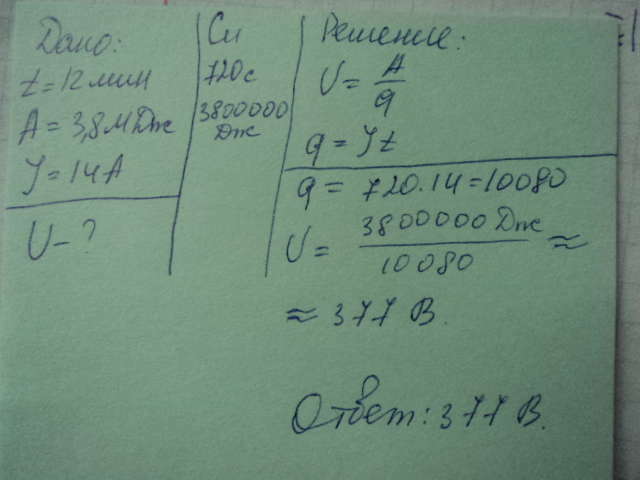 Дано:
t = 12 мин
A = 3,8 МДж
J = 14 A
U - ?
Си
720 с
3800000
Дж
Решение:
U = A/q
q = Jt
q = 720 · 14 = 10080
U = 3800000 Дж / 10080 ≈
≈ 377 В.
Ответ: 377 В.